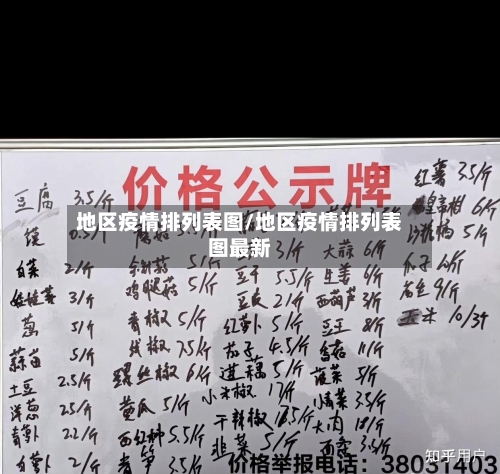 价格公示牌
地区疫情排列表图/地区疫情排列表
图最新
豆腐 3.5/斤
馍 0.5/斤
白菜 2/斤
娃娃菜 3/斤
葱 5/斤
蒜苗 5/斤
土豆 2.5/斤
洋葱 2.5/斤
青萝卜 2.2/斤
白萝卜 2/斤
杂鲜菇 5/斤
鸡腿菇 5/斤
青椒 5/斤
线椒 7.5/斤
螺丝椒 6/斤
黄瓜 5/斤
西红柿 5.5/斤
青笋 3.5/斤
豆干 5.5/斤
豆皮 5/斤
红萝卜 5/斤
茄子 4.5/斤
莲藕 5/斤
小米椒 17/斤
干辣椒 18.5/斤
韭菜 5/斤
大蒜 6/斤
生姜 6/斤
西葫芦 3/斤
豆王 8/斤
香菇 11/斤
菠菜 5/斤
小情菜 3.5/斤
大肉 18/斤
红薯 3.5/斤
6/斤
5/斤
瓜子 10/斤
花生 9/斤
玉米 10/3个
价格举报电话：38031403
知乎用户